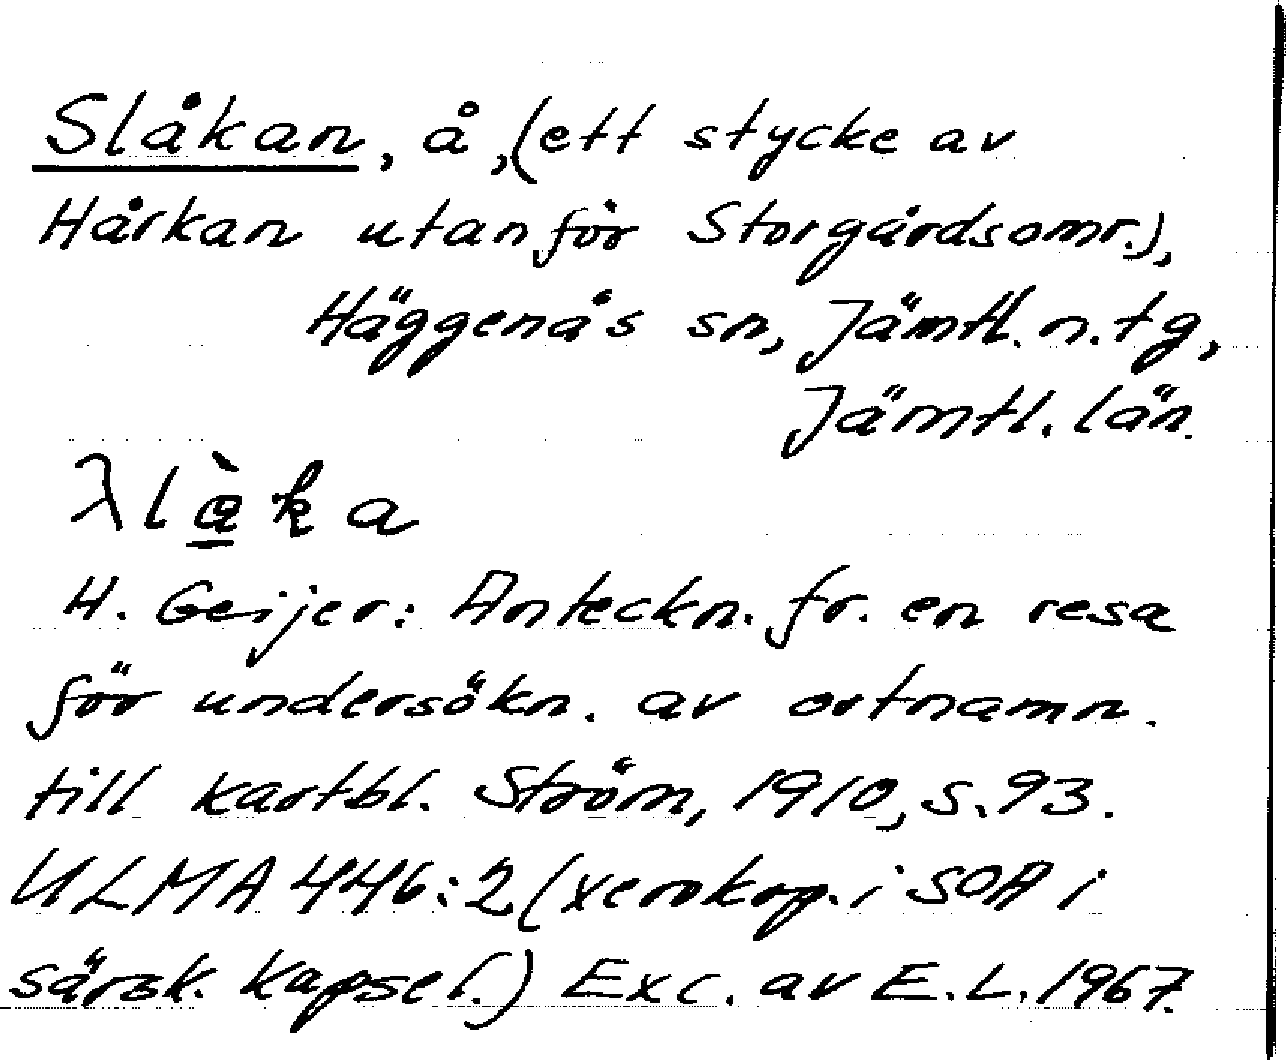 Slåkan, å, (ett stycke av
Hårkan utanför Storgårdsomr.),
Häggenås sn, Jämtl. n. tg,
Jämtl. län.
λlà̱ka
H. Geijer: Anteckn. fr. en resa
för undersökn. av ortnamn.
till kartbl. Ström, 1910, s. 93.
ULMA 446:2 (xerokop. i SOA i
särsk. kapsel.) Exc. av E. L. 1967.